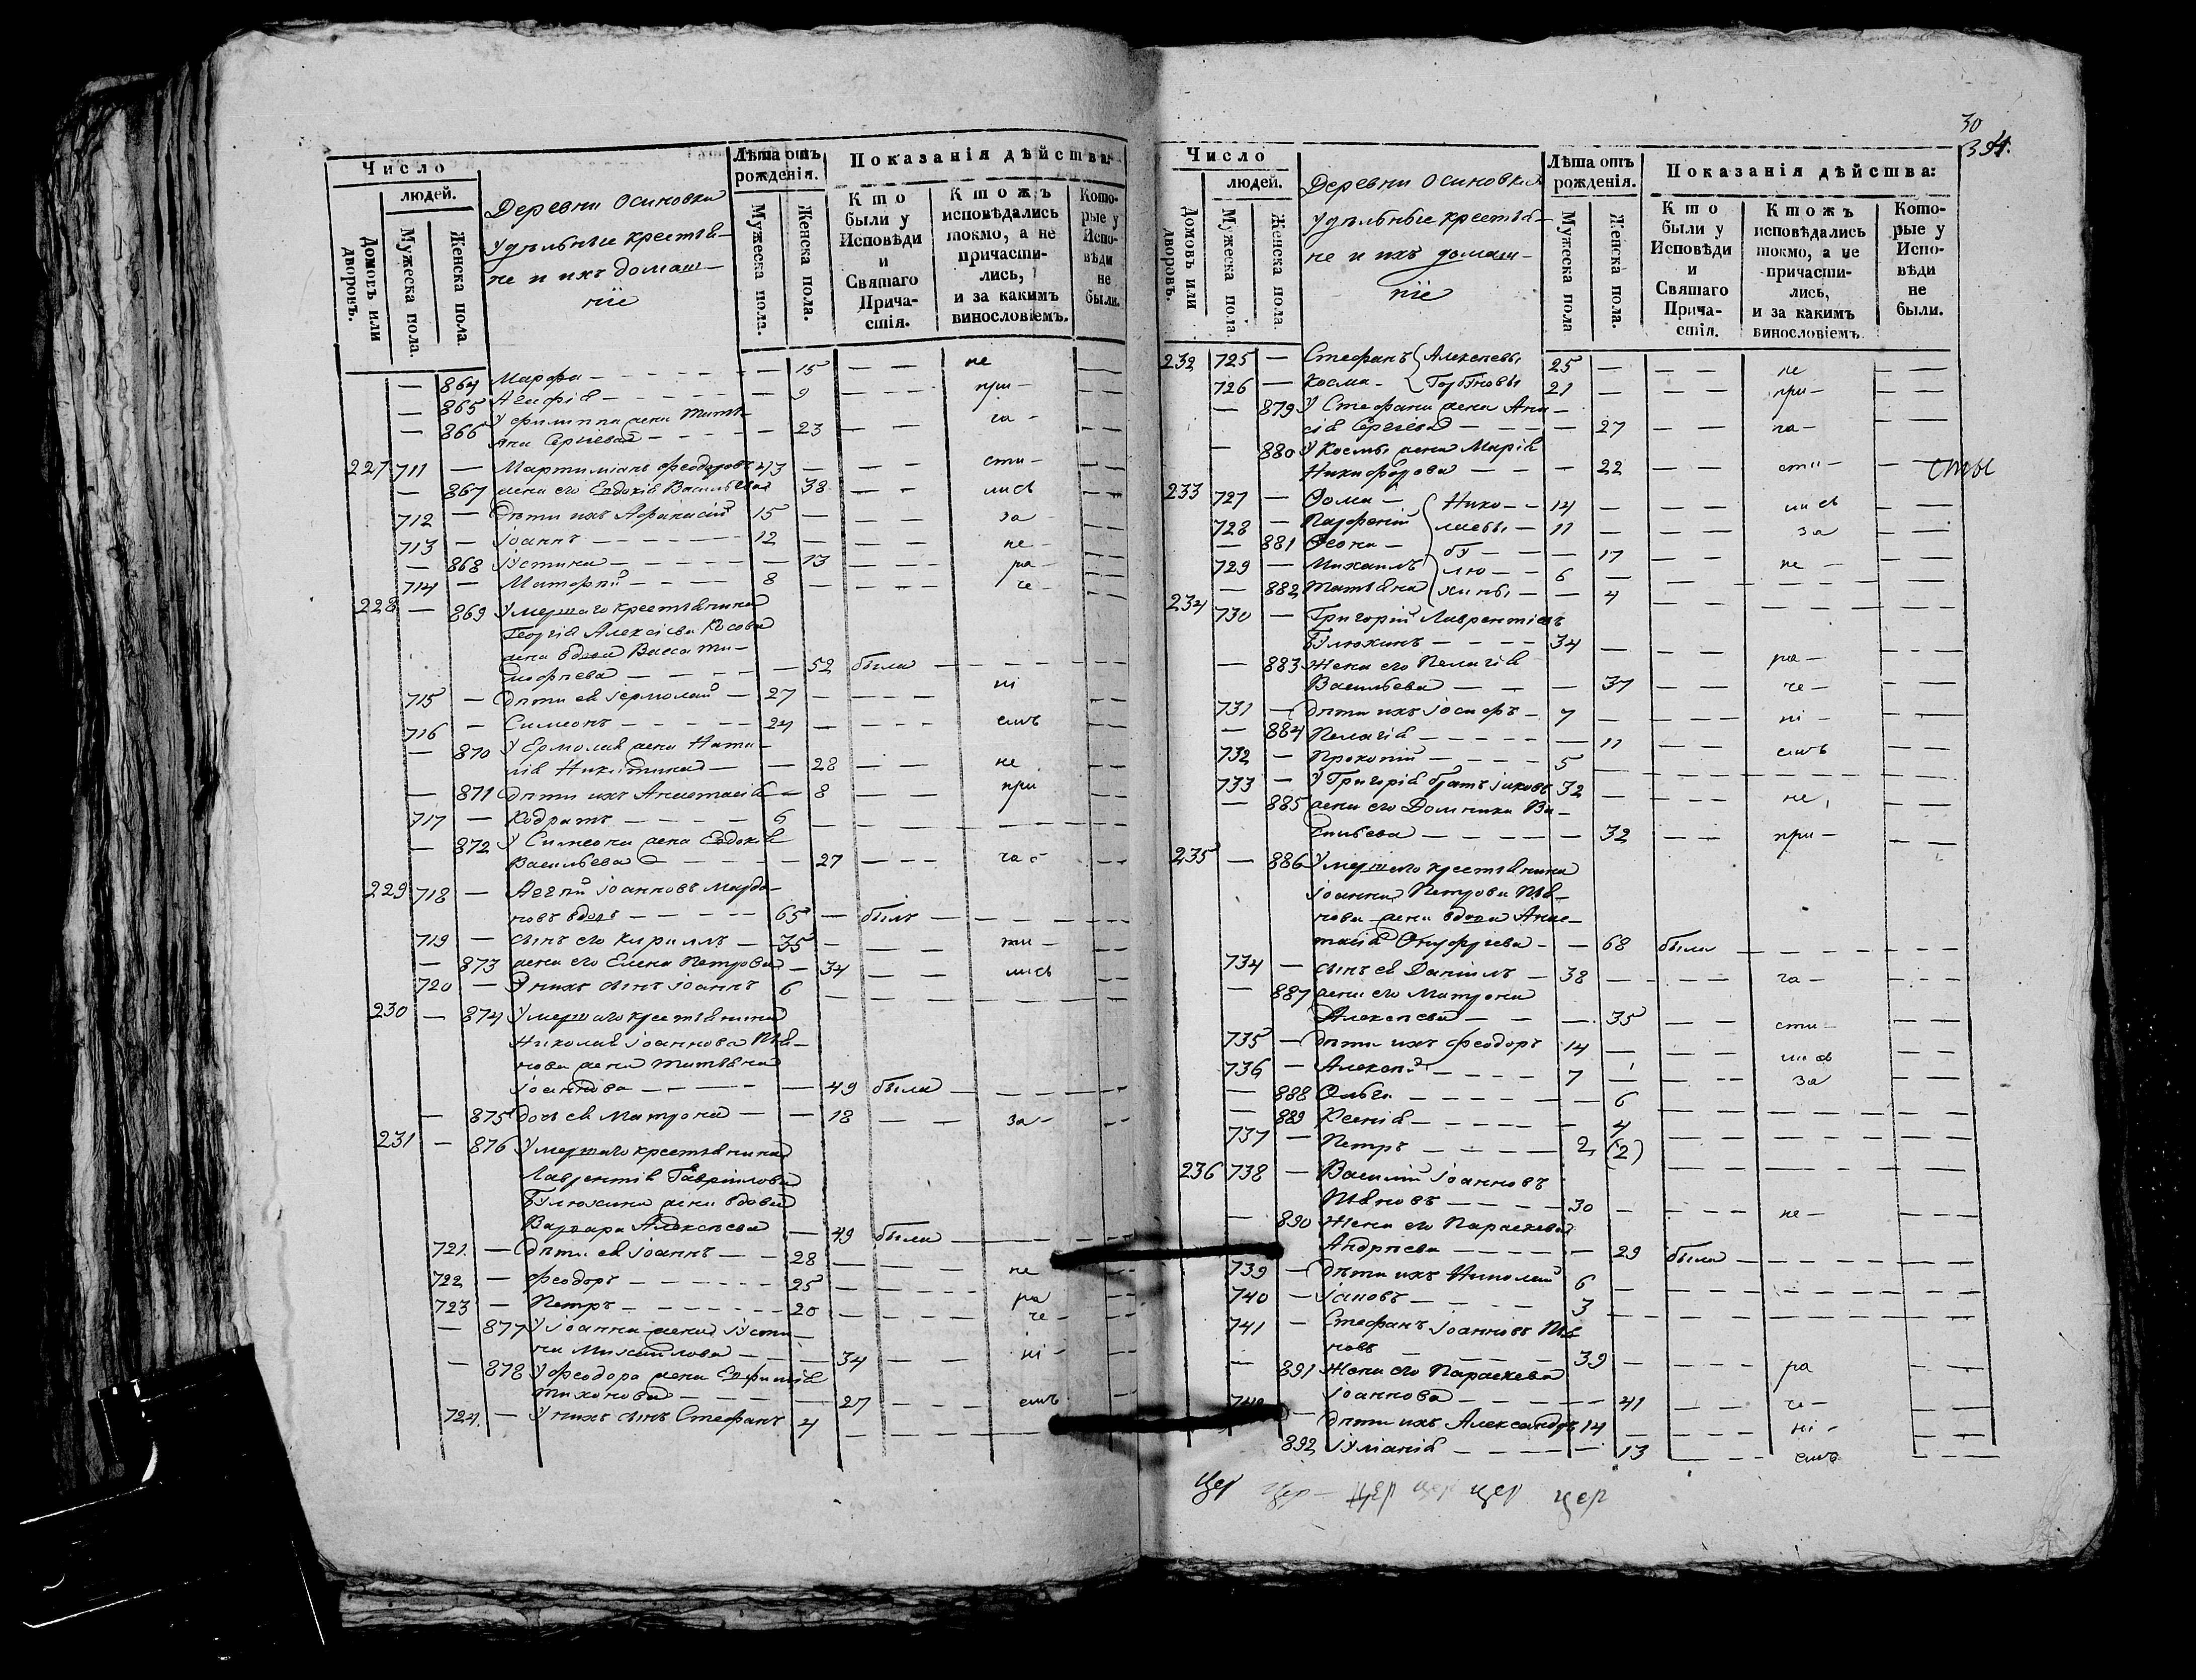 Число
людей.
Домовъ или дворовъ.
Мужеска пола.
Женска пола.
Деревни Осиновки
Удѣльные крестья-
не и ихъ домаш-
ніе
Лѣта отъ рожденія.
Мужеска пола.
Женска пола.
Показанія дѣйства:
Кто были у Исповѣди и Святаго Причастія.
Ктожъ исповѣдались токмо, а не причастились, и за какимъ винословіемъ.
Которые у Исповѣди не были.
— 864 Марфа — 15 — — не
— 865 Агафія — 9 — — при-
— 866 У Филиппа жена Татья-
на Сергіева — 23 — — ча-
227 711 — Мартиміанъ Феодоровъ 43 — сти-
— 867 жена его Евдокія Васильева 38 — лись
712 — Дѣти ихъ Афанасій 15 — за-
713 — Іоаннъ 12 — не-
— 868 Іустина — 13 — ра-
714 — Матофій 8 — че-
228 — 869 Умершаго крестьянина
Георгія Алексіева
жена вдова Васса Ти-
мофѣева — 52 была
715 — Дѣти ея Іермолай — 27 — ні
716 — Симеонъ — 24 — емъ
— 870 У Ермолая жена Ната-
лія Никитина — 28 — не
— 871 Дѣти ихъ Анастасія — 8 — при
717 — Кодратъ — 6
— 872 У Симеона жена Евдокія
Васильева — 27 — ча-
229 718 — Іоанновъ
вдовъ — 65 — былъ
719 — сынъ его Кириллъ — 35 — сти-
— 873 жена его Елена Петрова — 34 — лись
720 — У нихъ сынъ Іоаннъ 6
230 — 874 Умершаго крестьянина
Николая Іоаннова Пья-
нова жена Татьяна
Іоаннова — 49 была
— 875 дочь ея Матрона — 18 — за-
231 — 876 Умершаго крестьянина
Лаврентія Гавріилова
Булюхина жена вдова
Варвара Алексѣева — 49 была
721. — Дѣти ея Іоаннъ — 28 — не
722 — Феодоръ — 25 — ра
723 — Петръ — 20 — че-
— 877 У Іоанна жена Іусти-
на Михаилова — 34 — ні-
— 878 У Феодора жена Евфимія
Тихонова — 27 — емъ
724. — У нихъ сынъ Стефанъ 4
30
394.
Число
людей.
Домовъ или дворовъ.
Мужеска пола
Женска пола.
Деревни Осиновки
Удѣльные крестья-
не и ихъ домаш-
ніе
Лѣта отъ рожденія.
Мужеска пола
Женска пола.
Показанія дѣйства:
Кто были у Исповѣди и Святаго Причастія.
Ктожъ исповѣдались токмо, а не причастились, и за какимъ винословіемъ.
Которые у Исповѣди не были.
232 725 — Стефанъ Алексѣевы 25 — не
726 — Косма — Горбуновы 21 — при-
— 879 У Стефана жена Ани-
сія Сергіева — 27 — ча-
— 880 У Космы жена Марія
Никифорова — 22 — сти-
сты
233 727 — Фома — Нико- — 14 — лись
728 — Парфеній лаевы — 11 — за
— 881 Феона — бу — 17 — не
729 — Михаилъ лю — 6
— 882 Татьяна хины — 4
234 730 — Григорій Лаврентіевъ
Булюхинъ — 34
— 883 Жена его Пелагія
Васильева — 37 — ра- че-
731 — Дѣти ихъ Іосифъ — 7 — ні-
— 884 Пелагія — 11 — емъ
732 — Прокопій — 5
733 — У Григорія братъ Іаковъ 32 — не
— 885 жена его Домника Ва-
сильева — 32 — при-
235 — 886 Умершаго крестьянина
Іоанна Петрова Пья-
нова жена вдова Анас-
тасія Онуфріева — 68 была
734 — сынъ ея Даніилъ — 38 — ча-
— 887 жена его Матрона
Алексѣева — 35 — сти-
735 — Дѣти ихъ Феодоръ 14 — лись
736 — Алексѣй — 7 — за
— 888 Ольга — 6
— 889 Ксенія — 4
737 — Петръ — 2 (2)
236 738 — Василій Іоанновъ
Пьяновъ — 30 — не-
— 890 Жена его Параскева
Андрѣева — 29 была
739 — Дѣти ихъ Николай 6
740 — Іаковъ — 3
741 — Стефанъ Іоанновъ Пья-
новъ — 39 — ра
— 891 Жена его Параскева
Іоаннова — 41 — че-
742 — Дѣти ихъ Александръ 14 — ні-
892 Іуліанія — 13 — емъ
цер цер — цер цер цер цер